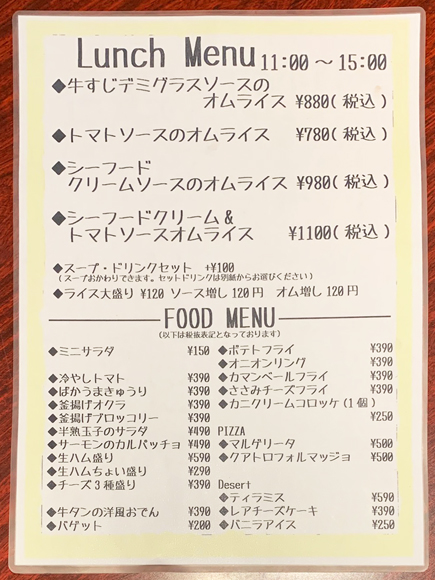 Lunch Menu 11:00 ～ 15:00
◆牛すじデミグラスソースの
オムライス ¥880(税込)
◆トマトソースのオムライス ¥780(税込)
◆シーフード
クリームソースのオムライス ¥980(税込)
◆シーフードクリーム＆
トマトソースオムライス ¥1100(税込)
◆スープ・ドリンクセット +¥100
(スープおかわりできます。セットドリンクは別紙からお選びください)
◆ライス大盛り ¥120 ソース増し 120円 オム増し 120円
FOOD MENU
(以下は税抜表記となっております)
◆ミニサラダ ¥150
◆冷やしトマト ¥390
◆ばかうまきゅうり ¥390
◆釜揚げオクラ ¥390
◆釜揚げブロッコリー ¥390
◆半熟玉子のサラダ ¥490
◆サーモンのカルパッチョ ¥490
◆生ハム盛り ¥590
◆生ハムちょい盛り ¥290
◆チーズ3種盛り ¥390
◆牛タンの洋風おでん ¥390
◆バゲット ¥200
◆ポテトフライ ¥390
◆オニオンリング ¥390
◆カマンベールフライ ¥390
◆ささみチーズフライ ¥390
◆カニクリームコロッケ(1個)
¥250
PIZZA
◆マルゲリータ ¥500
◆クアトロフォルマッジョ ¥500
Desert
◆ティラミス ¥590
◆レアチーズケーキ ¥390
◆バニラアイス ¥250